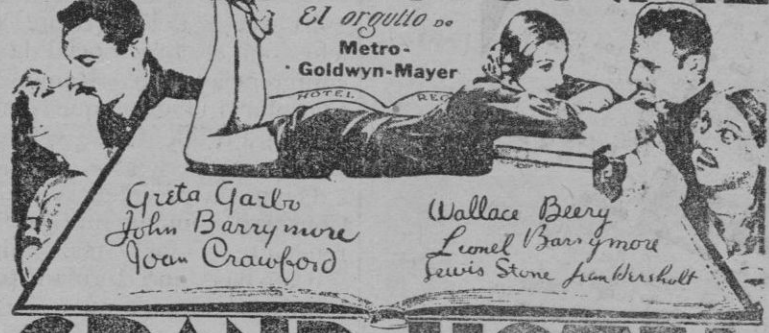 El orgullo DO
Metro-
Goldwyn-Mayer
HOTEL REG
Greta Garbo
John Barrymore
Joan Crawford
Wallace Beery
Lionel Barrymore
Lewis Stone Jean Hersholt
GRAND HOTEL